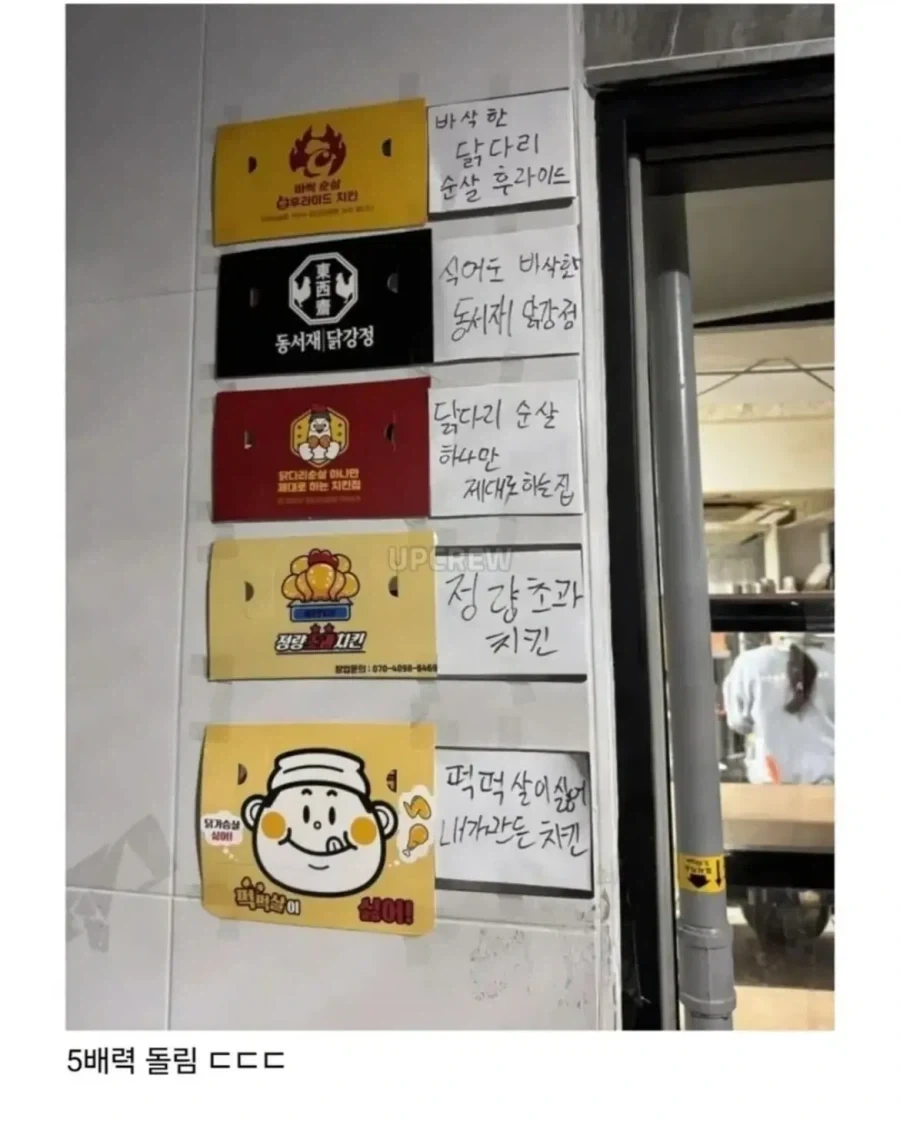 바삭 순살
후라이드 치킨
바삭한
닭다리
순살 후라이드
東
西
齋
동서재 닭강정
식어도 바삭한
동서재 닭강정
닭다리순살 하나만
제대로 하는 치킨집
닭다리 순살
하나만
제대로하는집
UPCREW
정량초과치킨
창업문의 : 070-4098-6469
정량초과
치킨
닭가슴살
싫어!
퍽퍽살이 싫어!
퍽퍽살이싫어
내가만든 치킨
5배력 돌림 ㄷㄷㄷ